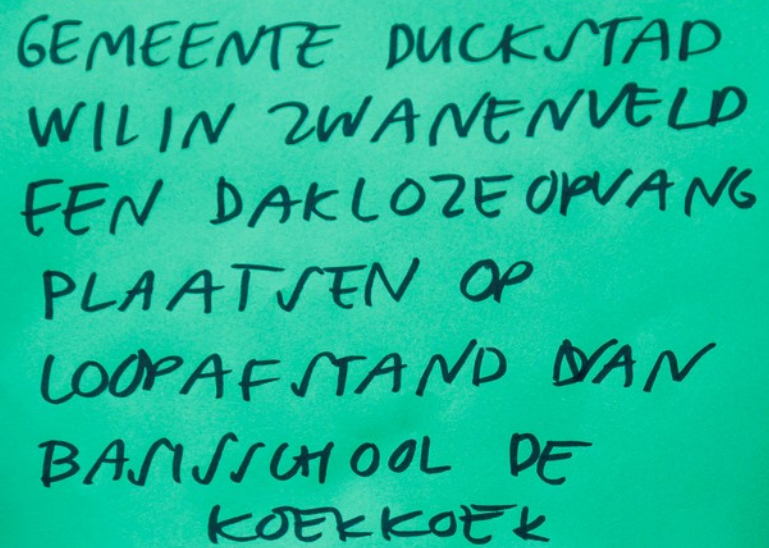 GEMEENTE DUCKSTAD
WIL IN ZWANENVELD
EEN DAKLOZEOPVANG
PLAATSEN OP
LOOPAFSTAND VAN
BASISSCHOOL DE
KOEKKOEK